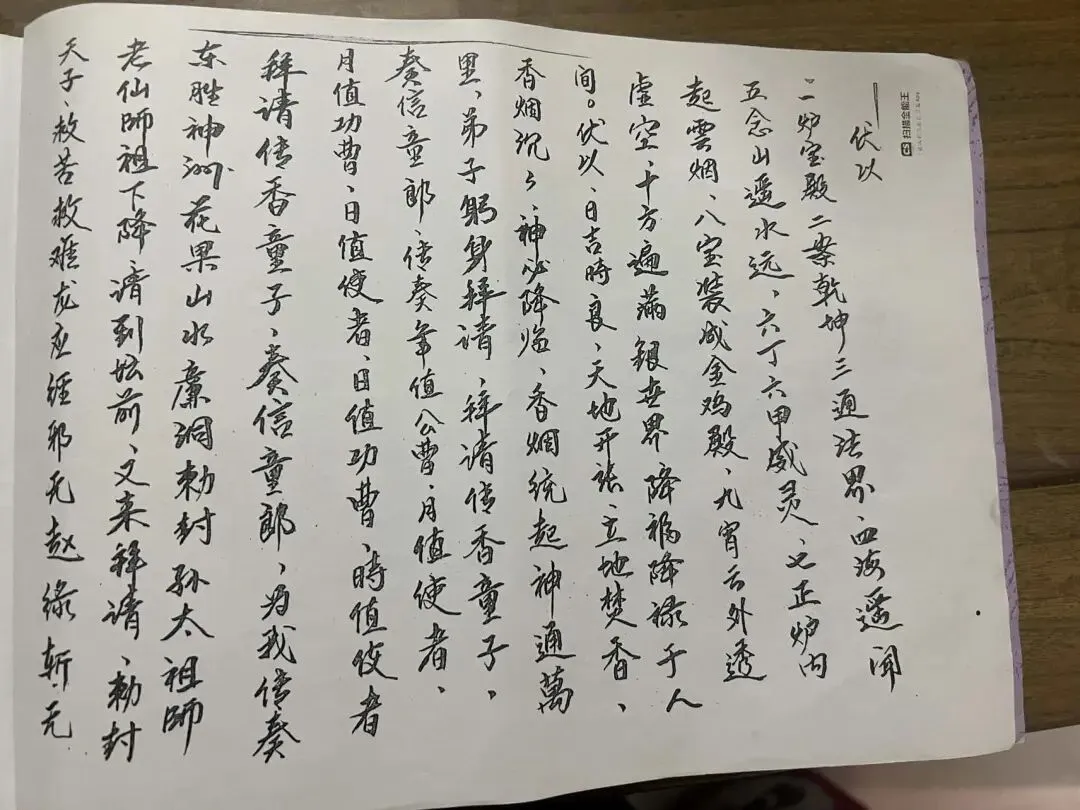 伏以
一炉宝殿二案乾坤三通法界、四海遥闻
五念山遥水远、六丁六甲威灵、七正炉内
起雲烟、八宝装成金鸡殿、九宵云外透
虚空、十方遍满银世界降福降禄于人
间。伏以、日吉時良、天地开张、立地焚香、
香烟沉々、神必降临、香烟统起神通萬
里、弟子躬身拜请、拜请传香童子、
奏信童郎、传奏年值公曹、月值使者、
月值功曹、日值使者、日值功曹、時值使者
拜请传香童子、奏信童郎、为我传奏
东胜神洲花果山水廉洞勅封孙太祖師
老仙師祖下降、请到坛前、又来拜请、勅封
天子、救苦救难龙应经邪无赵缘斩无
扫描全能王